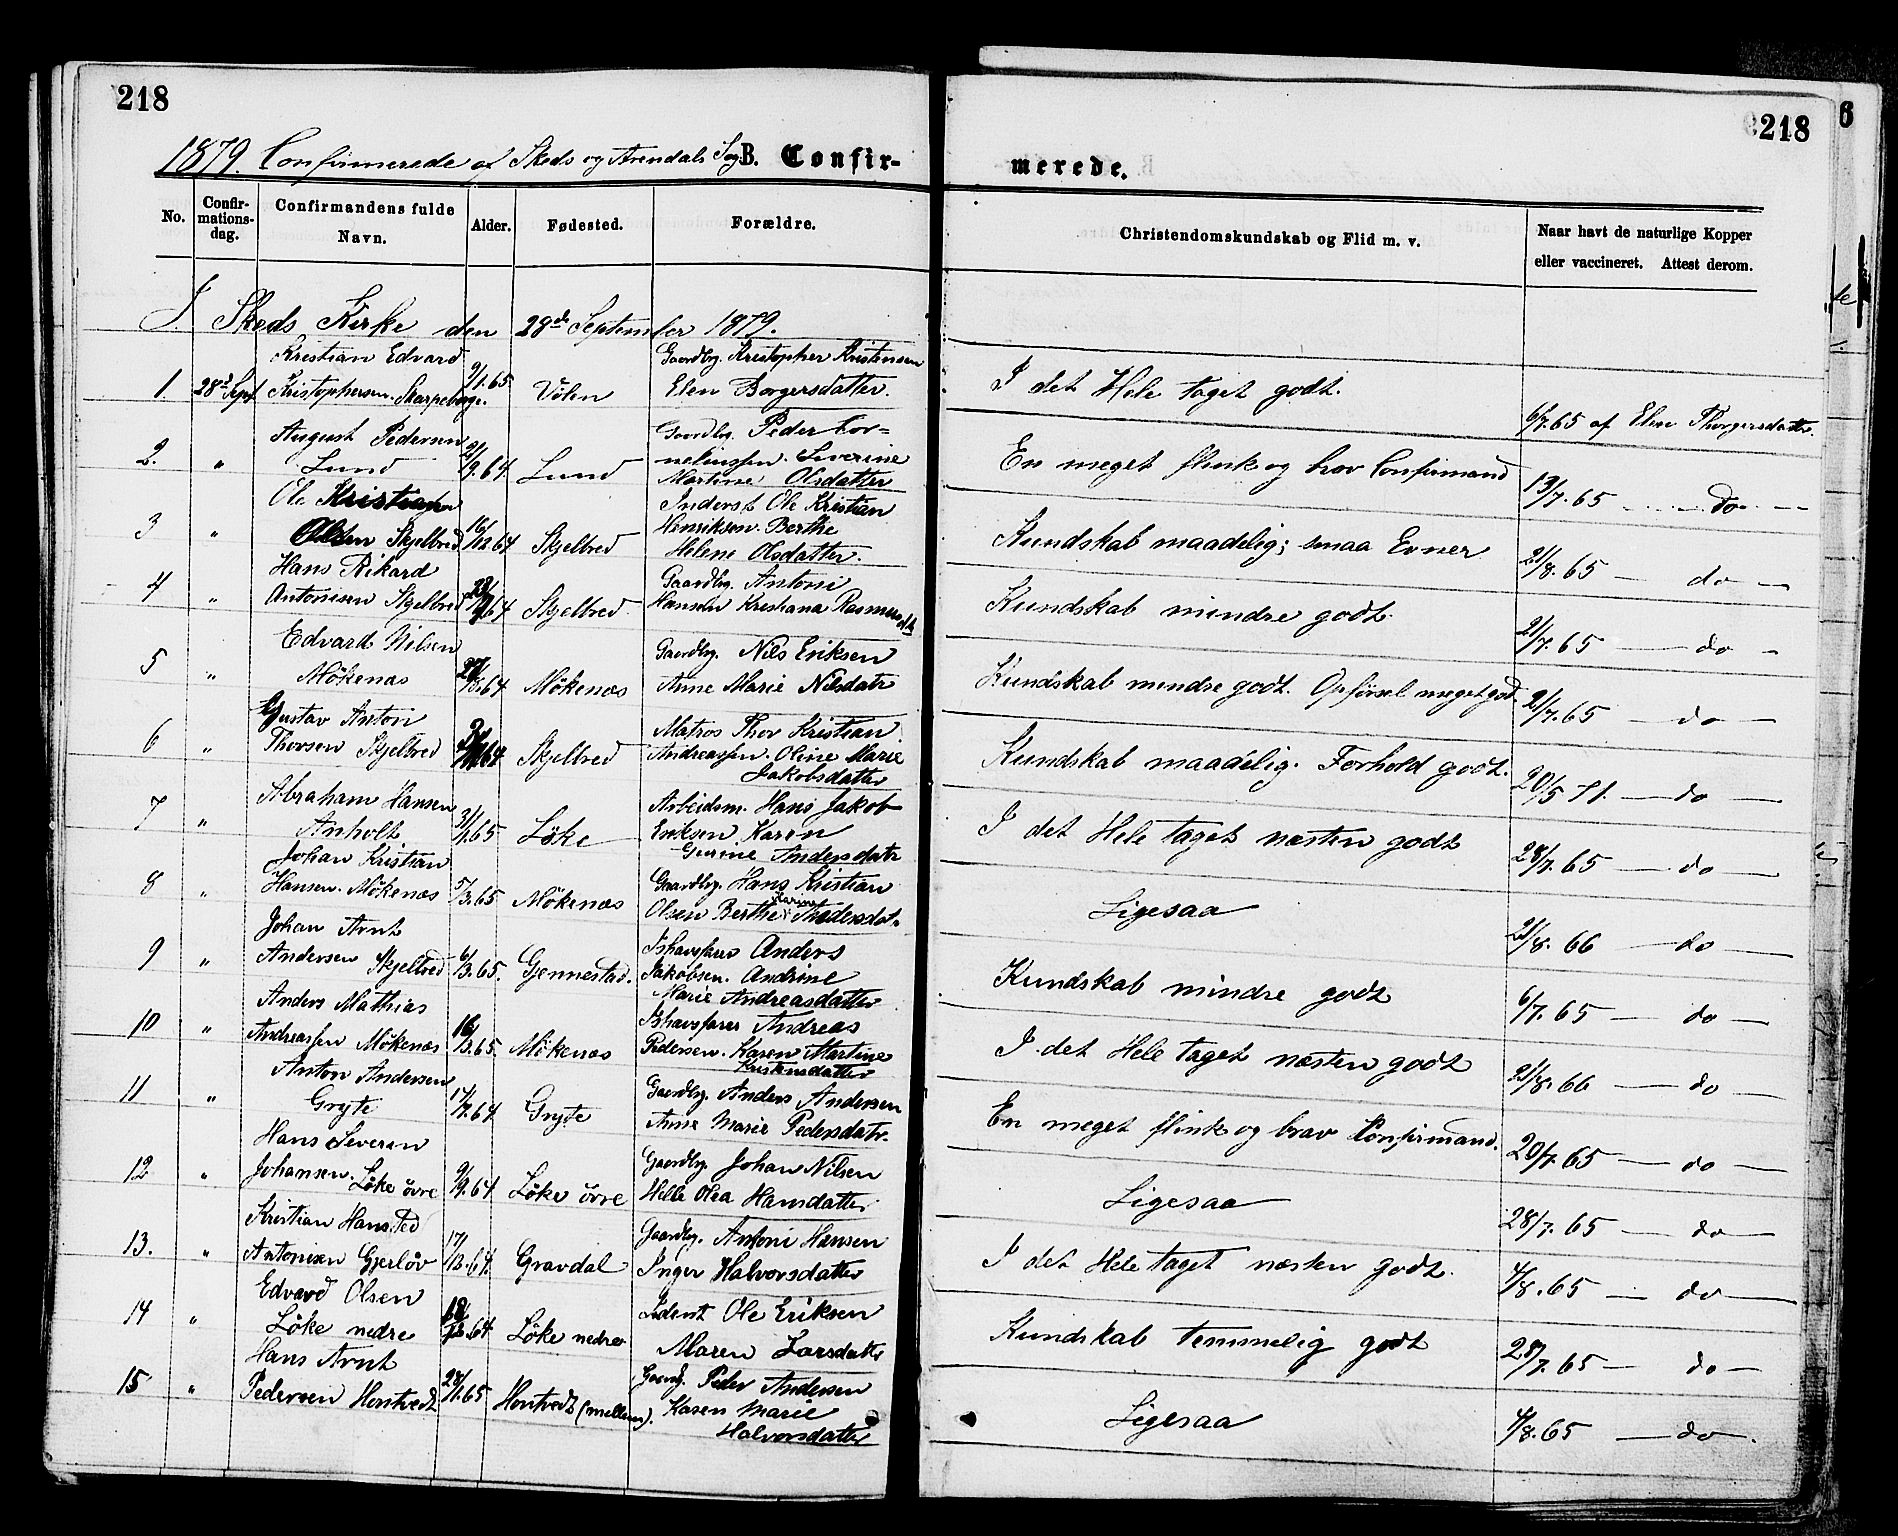 218
218
6
1879. Confirmerede af Skeds og Arendals Sog B. Confir-
merede.
No.
Confir-
mations-
dag.
Confirmandens fulde
Navn.
Alder.
Fødested.
Forældre.
Christendomskundskab og Flid m. v.
Naar havt de naturlige Kopper
eller vaccineret. Attest derom.
I. Skeds Kirke den 28de September 1879.
Kristian Edvard 9/1.65 Gaardbg. Kristopher Kristensen
1. 28d Sept. Kristophersen Skarpeborge. Völen Elen Borgersdatter. I det Hele taget godt. 6/7.65 af Elen Thorgersdatter.
August Pedersen Gaardbg. Peder Cor=
2. " Lund 9.64 Lund neliussen. Severine En meget flink og brav Confirmand 13/7.65 do
Martine Olsdatter
Ole Kristian Inderst Ole Kristian
3 " Olsen Skjelbred 16/12 64 Skjelbred Henriksen. Berthe Kundskab maadelig; smaa Evner 21/8.65 do
Helene Olsdatter.
Hans Rikard Gaardbg. Antoni
4 " Antonisen Skjelbred 64 Skjelbred Hansen Kristiana Rasmusdtr Kundskab mindre godt 21/7.65 do
Edvard Nilsen Gaardbg. Nils Eriksen
5 " Mökenæs 8.64 Mökenæs Anne Marie Nilsdatr Kundskab mindre godt. Opførsel meget god. 21/7.65 do
Gustav Anton Matros Thor Kristian
6 " Thorsen Skjelbred 64 Skjelbred Andreassen. Oline Marie Kundskab maadelig. Forhold godt. 20/5 71. do
Jakobsdatter
Abraham Hansen Arbeidsm. Hans Jakob
7 " Anholt 3/1.65 Löke Eriksen Karen I det Hele taget næsten godt 28/7.65 do
Gurine Andersdatr
Johan Kristian Gaardbg. Hans Kristian
8 " Hansen. Mökenæs 5/3.65 Mökenæs Olsen Berthe Karine Andersdatr Ligesaa 21/8. 66 do
Johan Arnt Ishavsfarer Anders
9 " Andersen Skjelbred 6/3.65. Gjennestad. Jakobsen. Andrine Kundskab mindre godt 6/7.65 do
Marie Andreasdatter
Anders Mathias Ishavsfarer Andreas
10 " Andreassen Mökenæs 16/3.65 Mökenæs Pedersen. Karen Martine I det Hele taget næsten godt 21/8.66 do
Kristensdatter
Anton Andersen Gaardbg. Anders Andersen
11 " Gryte 17/7.64 Gryte Anne Marie Pedersdatr. En meget flink og brav Konfirmand. 20/7.65 do
Hans Severin Gaardbg. Johan Nilsen
12 " Johansen. Löke övre 9/9.64 Löke övre Helle Olea Hansdatter Ligesaa 28/7.65 do
Kristian Hansted Gaardbg. Antoni Hansen
13. " Antonisen Gjerlöv 17/12.64. Gravdal Inger Halvorsdatter I det Hele taget næsten godt. 4/8.65 do
Edvard Olsen Ole Eriksen
14 " Löke nedre 12.64 Löke nedre Maren Larsdatter Kundskab temmelig godt 28/7.65 do
Hans Arnt Gaardbg. Peder Andersen
15 " Pedersen Hontvedt 28/1.65 Hontvedt (mellem). Karen Marie Ligesaa 4/8.65 do.
Halvorsdatter